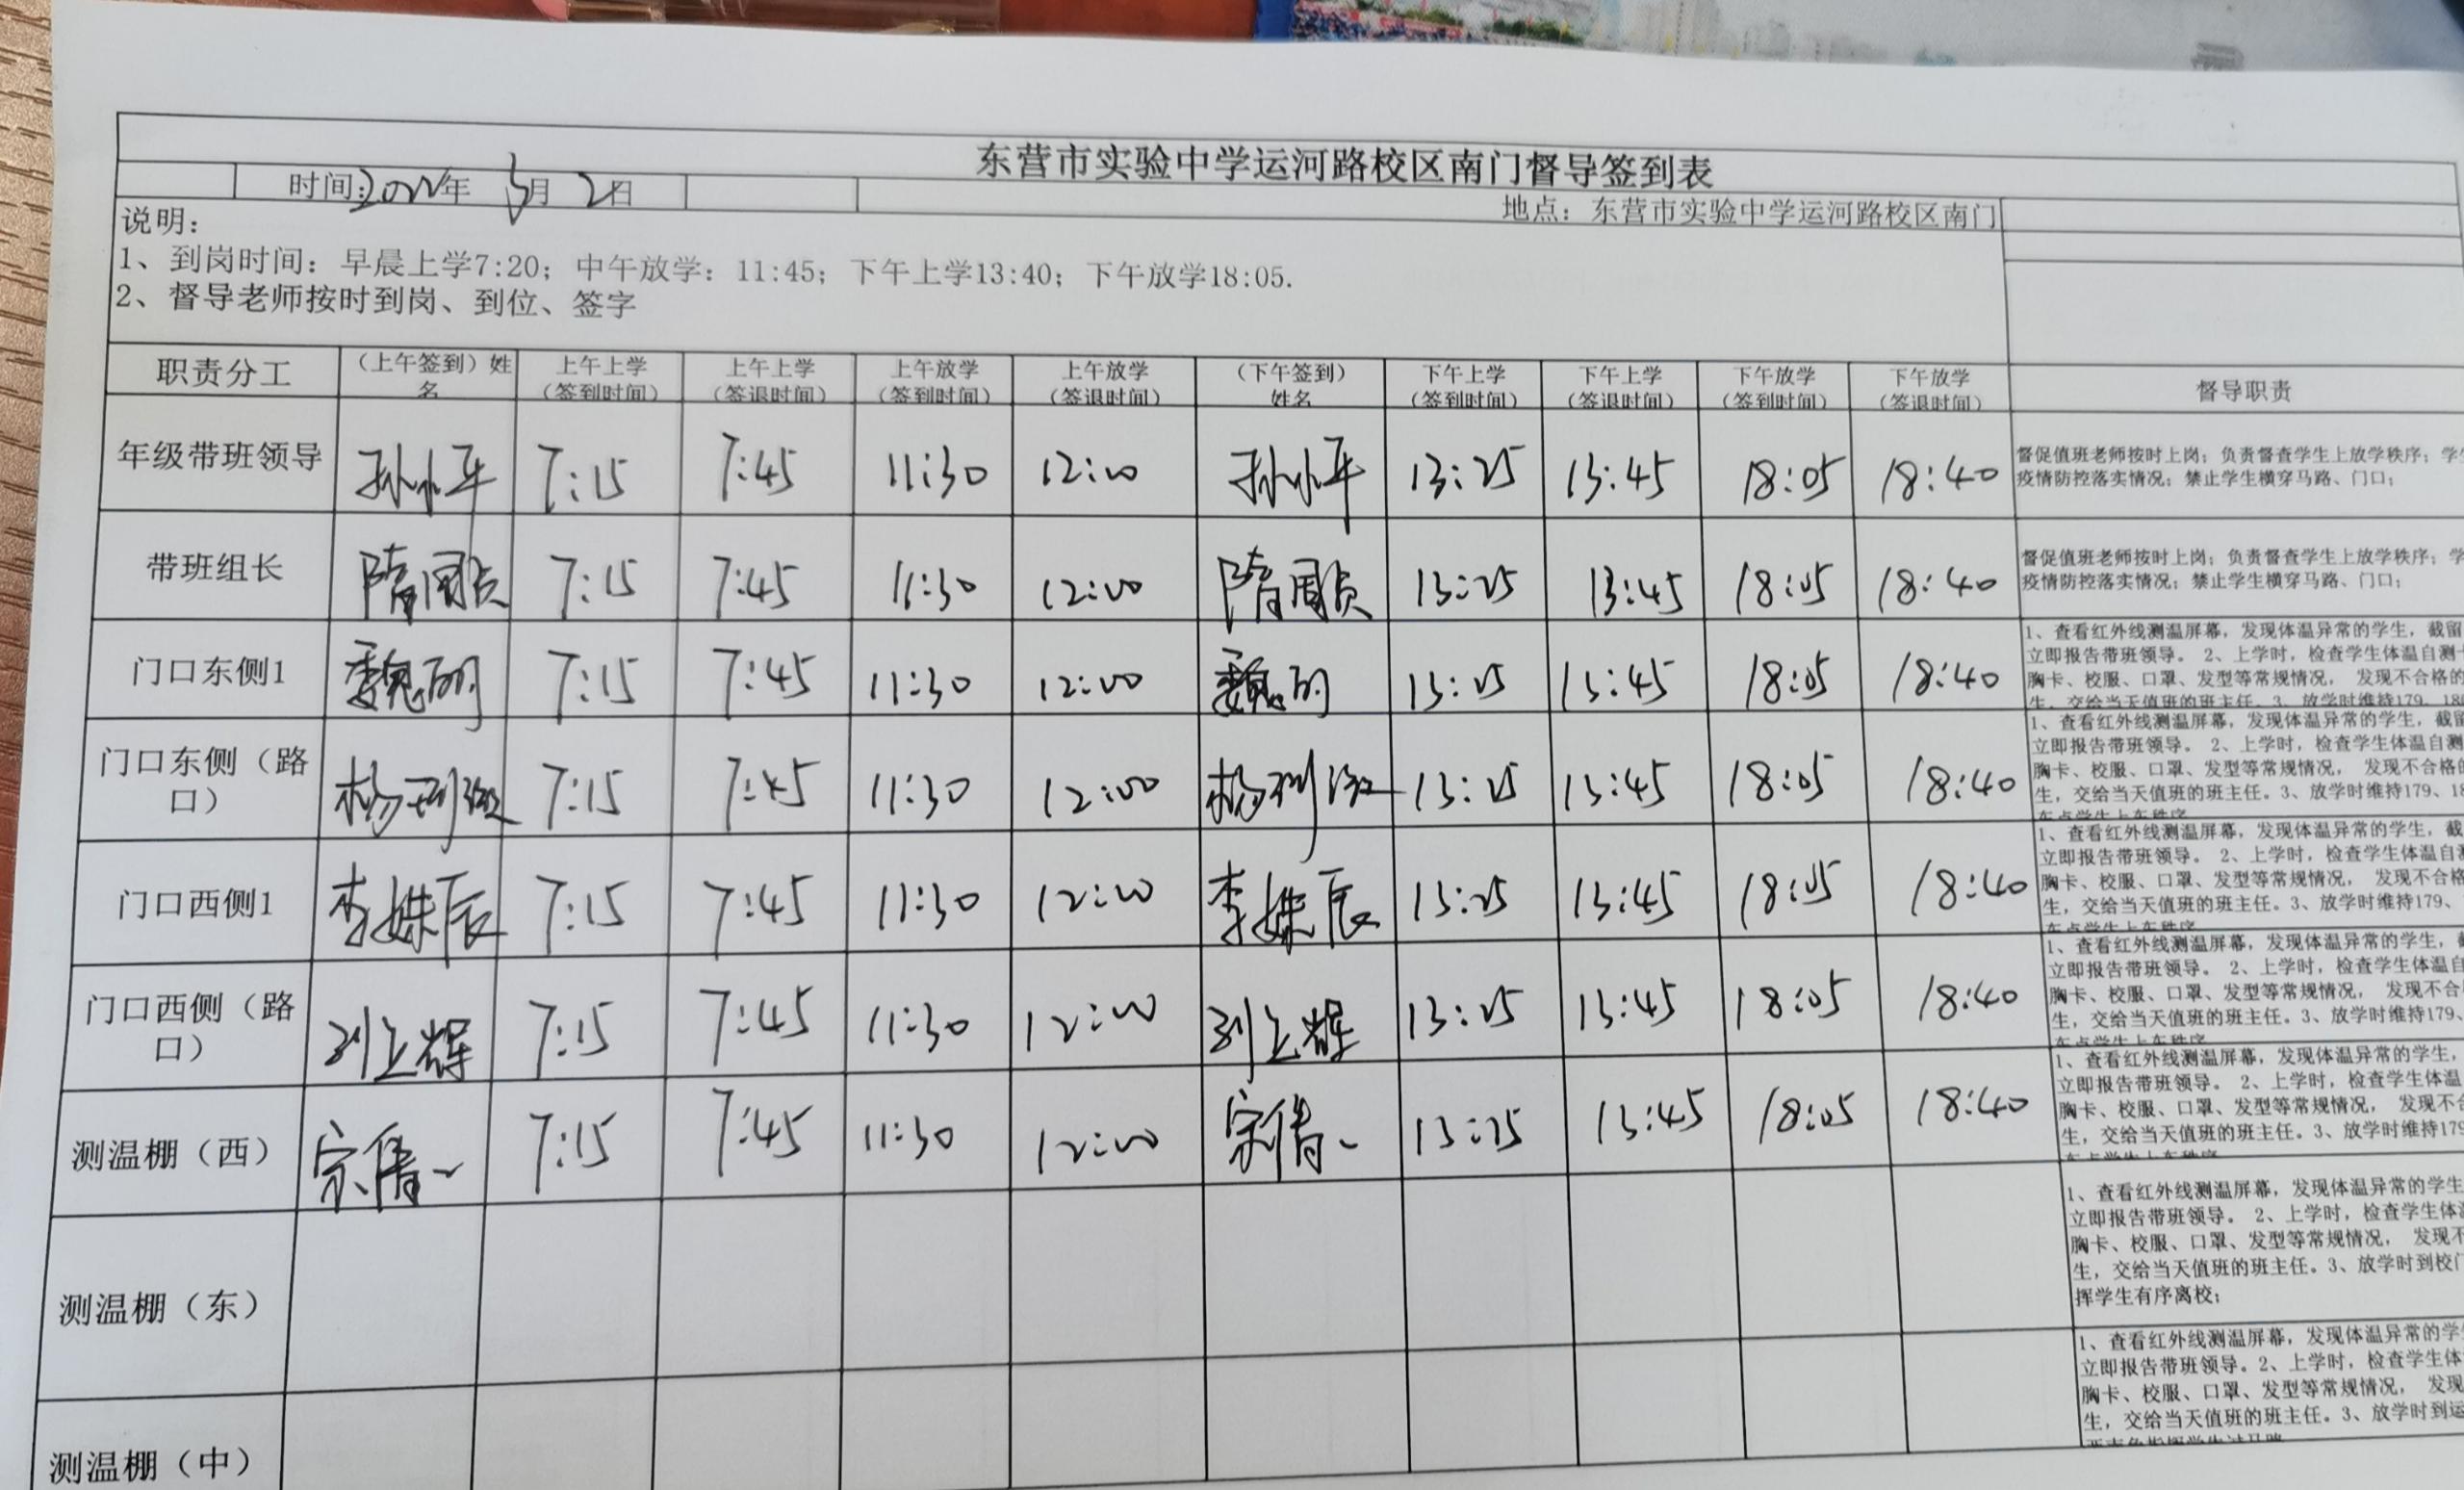 东营市实验中学运河路校区南门督导签到表
时间:2022年 3月 2日
地点：东营市实验中学运河路校区南门
说明：
1、到岗时间：早晨上学7:20；中午放学：11:45；下午上学13:40；下午放学18:05.
2、督导老师按时到岗、到位、签字
职责分工 （上午签到）姓名 上午上学（签到时间） 上午上学（签退时间） 上午放学（签到时间） 上午放学（签退时间） （下午签到）姓名 下午上学（签到时间） 下午上学（签退时间） 下午放学（签到时间） 下午放学（签退时间） 督导职责
年级带班领导 孙小平 7:15 7:45 11:30 12:00 孙小平 13:25 13:45 18:05 18:40
督促值班老师按时上岗；负责督查学生上放学秩序；学生
疫情防控落实情况；禁止学生横穿马路、门口；
带班组长 7:15 7:45 11:30 12:00 13:25 13:45 18:05 18:40
督促值班老师按时上岗；负责督查学生上放学秩序；学
疫情防控落实情况；禁止学生横穿马路、门口；
门口东侧1 7:15 7:45 11:30 12:00 13:25 13:45 18:05 18:40
1、查看红外线测温屏幕，发现体温异常的学生，截留
立即报告带班领导。 2、上学时，检查学生体温自测
胸卡、校服、口罩、发型等常规情况， 发现不合格的
生，交给当天值班的班主任。3、放学时维持179、18
门口东侧（路口） 7:15 7:45 11:30 12:00 13:25 13:45 18:05 18:40
1、查看红外线测温屏幕，发现体温异常的学生，截留
立即报告带班领导。 2、上学时，检查学生体温自测
胸卡、校服、口罩、发型等常规情况， 发现不合格的
生，交给当天值班的班主任。3、放学时维持179、18
车点学生上车秩序
门口西侧1 李姝辰 7:15 7:45 11:30 12:00 李姝辰 13:25 13:45 18:05 18:40
1、查看红外线测温屏幕，发现体温异常的学生，截
立即报告带班领导。 2、上学时，检查学生体温自测
胸卡、校服、口罩、发型等常规情况， 发现不合格
生，交给当天值班的班主任。3、放学时维持179、
车点学生上车秩序
门口西侧（路口） 7:15 7:45 11:30 12:00 13:25 13:45 18:05 18:40
1、查看红外线测温屏幕，发现体温异常的学生，
立即报告带班领导。 2、上学时，检查学生体温自
胸卡、校服、口罩、发型等常规情况， 发现不合
生，交给当天值班的班主任。3、放学时维持179、
车点学生上车秩序
测温棚（西） 宋倩一 7:15 7:45 11:30 12:00 宋倩一 13:25 13:45 18:05 18:40
1、查看红外线测温屏幕，发现体温异常的学生，
立即报告带班领导。 2、上学时，检查学生体温
胸卡、校服、口罩、发型等常规情况， 发现不合
生，交给当天值班的班主任。3、放学时维持179
车点学生上车秩序
测温棚（东）
1、查看红外线测温屏幕，发现体温异常的学生
立即报告带班领导。 2、上学时，检查学生体温
胸卡、校服、口罩、发型等常规情况， 发现不
生，交给当天值班的班主任。3、放学时到校门
挥学生有序离校；
测温棚（中）
1、查看红外线测温屏幕，发现体温异常的学
立即报告带班领导。2、上学时，检查学生体
胸卡、校服、口罩、发型等常规情况， 发现
生，交给当天值班的班主任。3、放学时到运